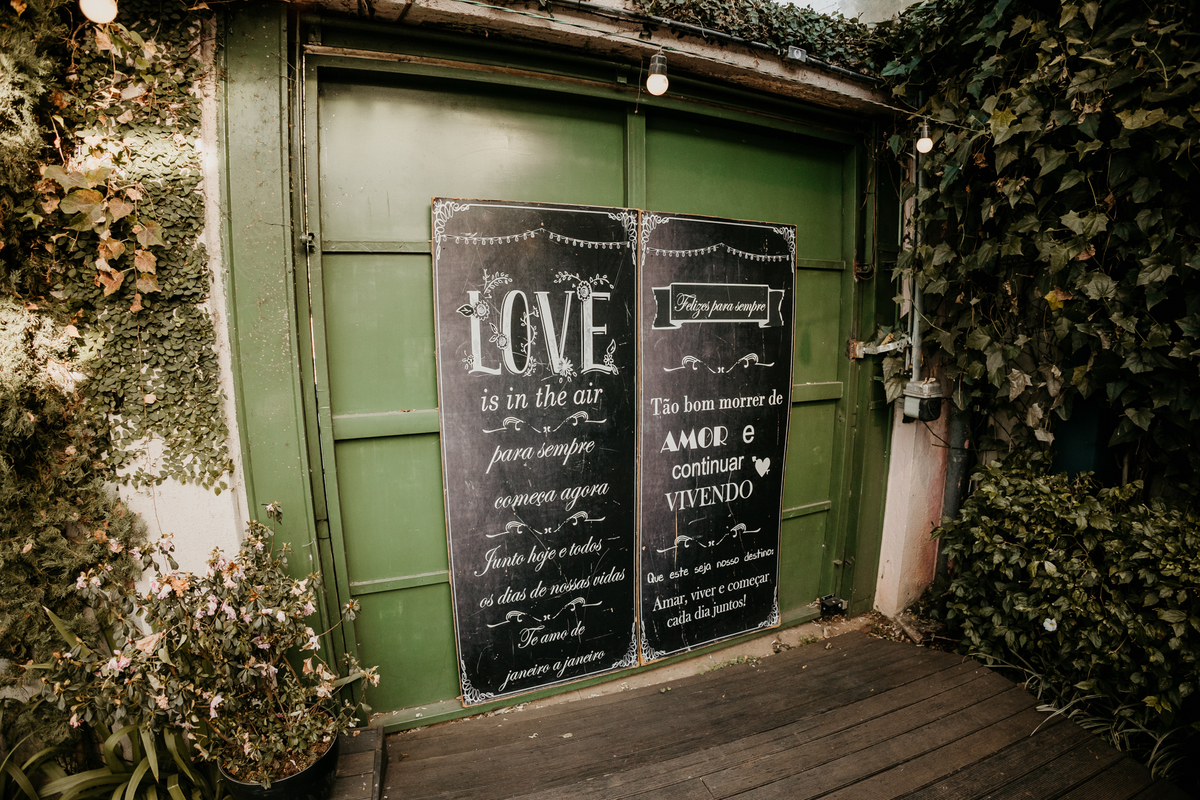 LOVE
is in the air
para sempre
começa agora
Junto hoje e todos
os dias de nossas vidas
Te amo de
janeiro a janeiro
Felizes para sempre
Tão bom morrer de
AMOR e
continuar
VIVENDO
Que este seja nosso destino:
Amar, viver e começar
cada dia juntos!